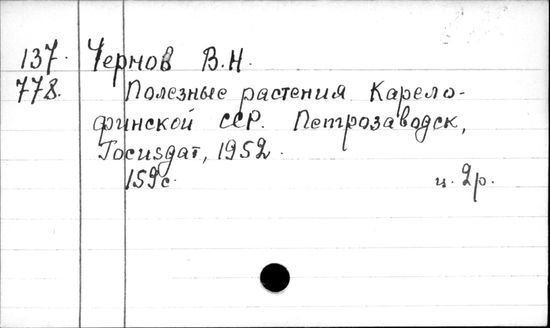 137. Чернов В.Н.
778. Полезные растения Карело-
финской ССР. Петрозаводск,
Госиздат, 1952.
159с. ц. 2р.